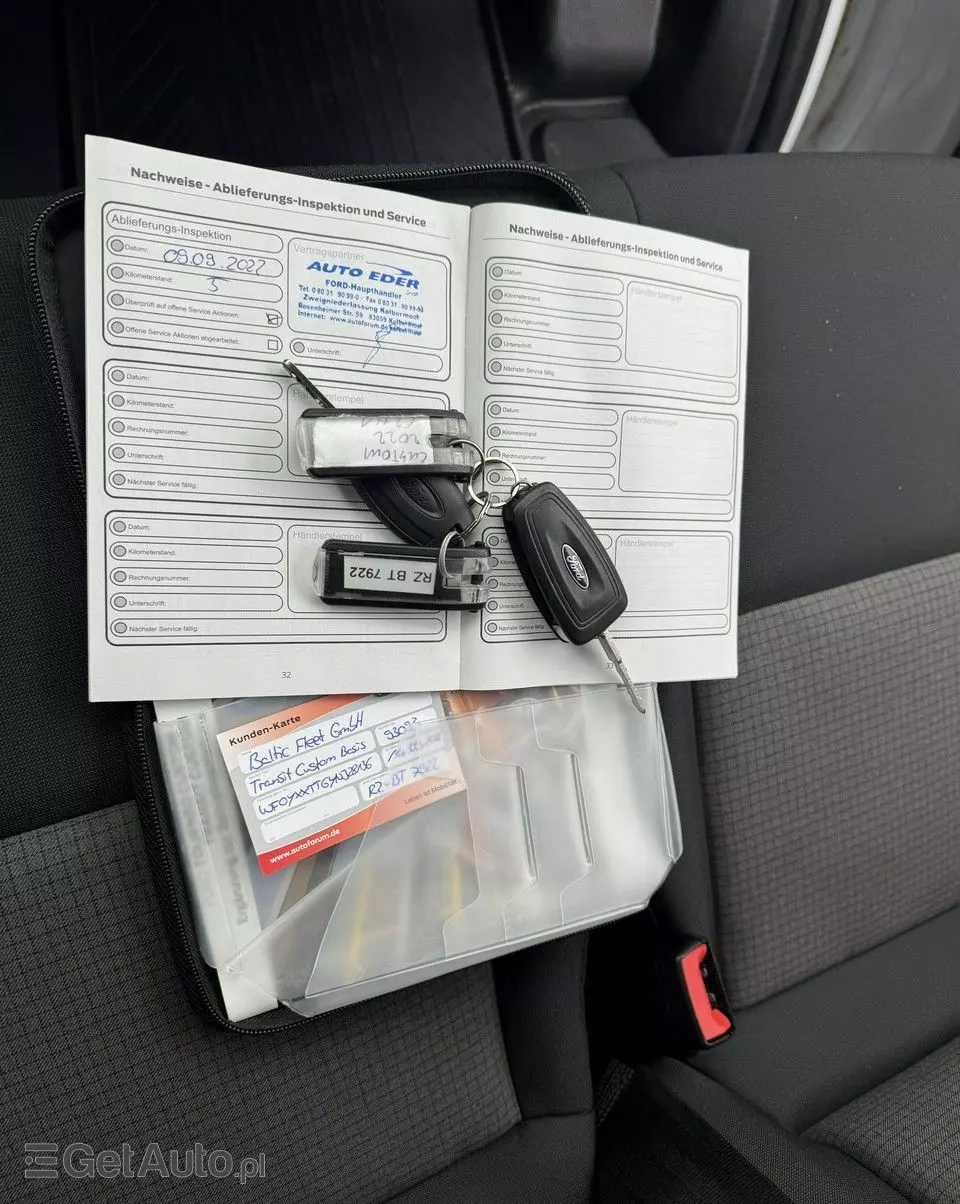 Nachweise - Ablieferungs-Inspektion und Service
Ablieferungs-Inspektion
Datum: 09.09.2022
Kilometerstand: 5
Überprüft auf offene Service Aktionen:
Offene Service Aktionen abgearbeitet:
Vertragspartner
AUTO EDER
FORD-Haupthändler
Tel. 0 80 31 90 99 0 - Fax 0 80 31 90 99-90
Zweigniederlassung Kolbermoor
Rosenheimer Str. 59 83059 Kolbermoor
Internet: www.autoforum.de
Unterschrift:
Datum:
Kilometerstand:
Rechnungsnummer:
Unterschrift:
Nächster Service fällig:
Händlerstempel
Datum:
Kilometerstand:
Rechnungsnummer:
Unterschrift:
Nächster Service fällig:
Händlerstempel
32
Nachweise - Ablieferungs-Inspektion und Service
Datum
Kilometerstand
Rechnungsnummer
Unterschrift
Nächster Service fällig
Händlerstempel
Datum
Kilometerstand
Rechnungsnummer
Händlerstempel
Rechnungsnummer
Unterschrift
Nächster Service fällig
Händlerstempel
33
CUSTOM
2022
RZ BT 7922
Ford
Kunden-Karte
Baltic Fleet GmbH
Transit Custom Basis
RZ-BT 7922
Leben ist Mobilität.
www.autoforum.de
GetAuto.pl